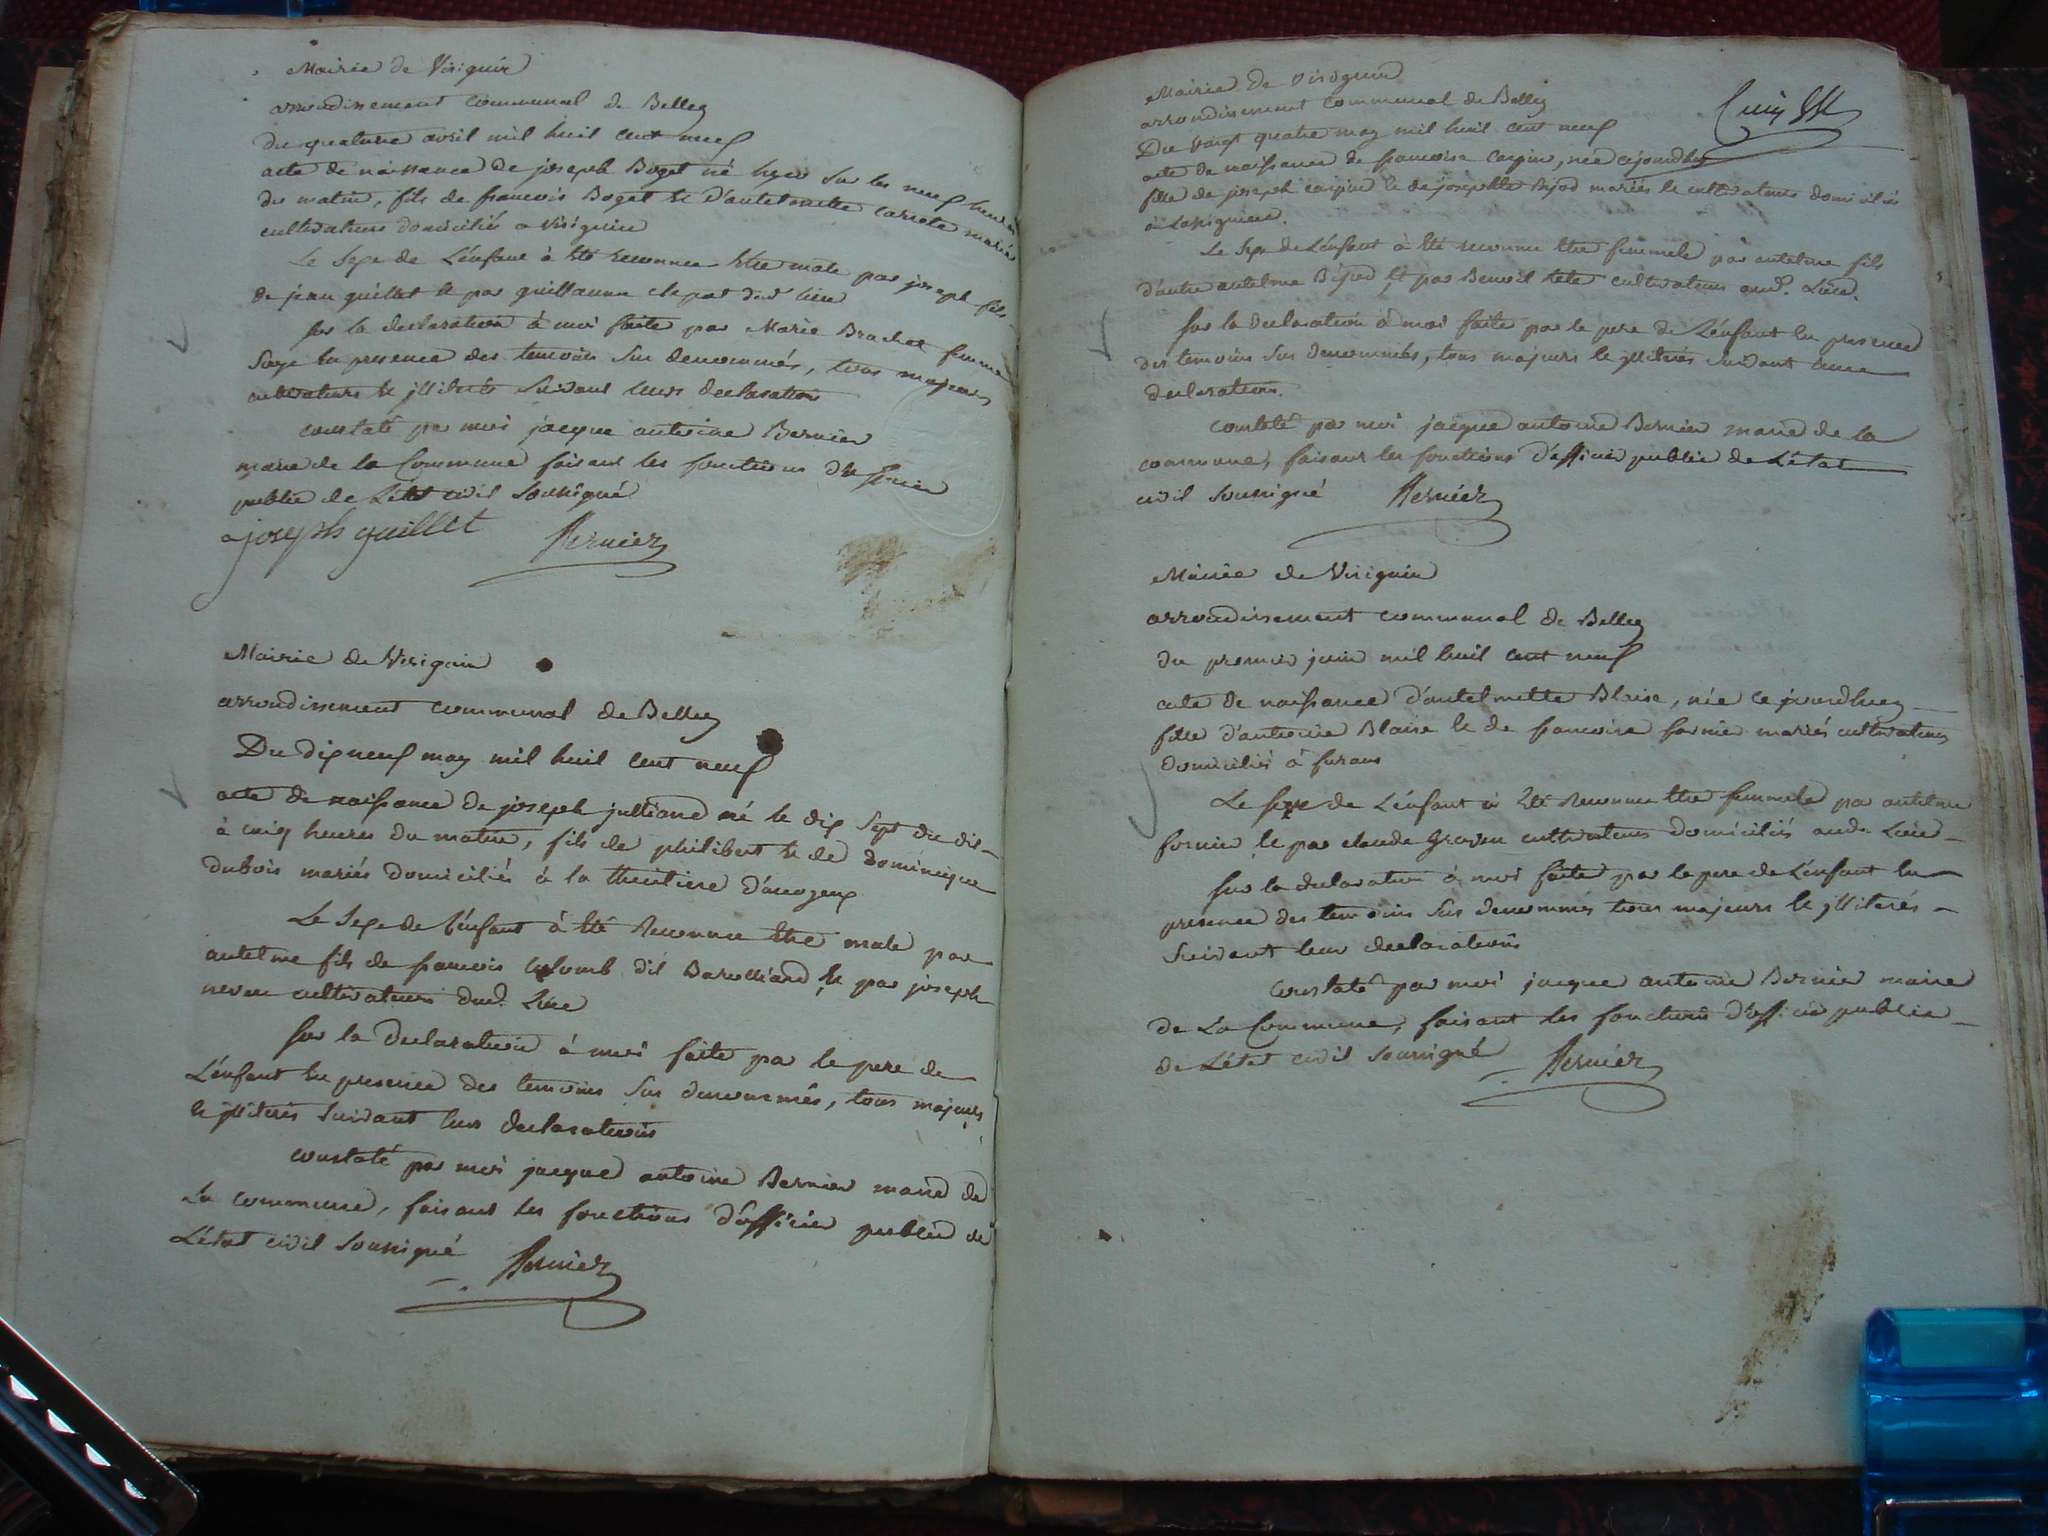 Mairie de Virignin
arrondissement communal de Belley
du quatorze avril mil huit cent neuf
acte de naissance de joseph Boget né hyer sur les neuf heures
du matin, fils de francois Boget et d'antelmette mariés
cultivateurs domiciliés a Virignin
Le Sexe de L'enfant à été reconnu être male par joseph fils
de jean guillet et par guillaume dud lieu
sur la declaration à moi faite par Marie Brachet femme
Sage en presence des temoins sus denommés, tous majeurs
cultivateurs et illiterés suivant leurs declarations
constaté par moi jacque antoine Bernier
maire de la Commune faisant les fonctions d'officier
public de L'état civil soussigné
joseph guillet Bernier
Mairie de Virignin
arrondissement communal de Belley
Du dix neuf may mil huit cent neuf
acte de naissance de joseph julliand né le dix sept du dit
à cinq heures du matin, fils de philibert et de dominique
dubois mariés domiciliés à la d'
Le Sexe de l'enfant à été Reconnu être male par
antelme fils de francois Colomb dit et par joseph
neveu cultivateurs dud. Lieu
sur la declaration à moi faite par le pere de
L'enfant en presence des temoins sus denommés, tous majeurs
et illiterés suivant leurs declarations
constaté par moi jacque antoine Bernier maire de
La commune, faisant les fonctions d'officier public de
L'état civil soussigné Bernier
Mairie de Virignin
arrondissement communal de Belley
Du vingt quatre may mil huit cent neuf
acte de naissance de francoise carpin, née cejourdhuy
fille de joseph carpin et de josephte Bijod mariés et cultivateurs domiciliés
à
Le Sexe de L'enfant à été reconnu être femmele par antelme fils
d'autre antelme Bijod, et par Benoit tete cultivateurs aud. Lieu.
sur la declaration à moi faite par le pere de L'enfant en presence
des temoins sus denommés, tous majeurs et illiterés suivant leur
declaration.
constaté par moi jacque antoine Bernier maire de la
commune, faisant les fonctions d'officier public de L'état
civil soussigné Bernier
Mairie de Virignin
arrondissement communal de Belley
du premier juin mil huit cent neuf
acte de naissance d'antelmette Blaise, née ce jourdhuy
fille d'antoine Blaise et de francoise fornier mariés cultivateurs
domiciliés à furans
Le sexe de L'enfant à été Reconnu être femmele par antelme
fornier et par claude cultivateurs domiciliés aud. Lieu
sur la declaration à moi faite par le pere de L'enfant en
presence des temoins sus denommés tous majeurs et illiterés
suivant leur declaration
constaté par moi jacque antoine Bernier maire
de La Commune, faisant les fonctions d'officier public
de L'état civil soussigné Bernier